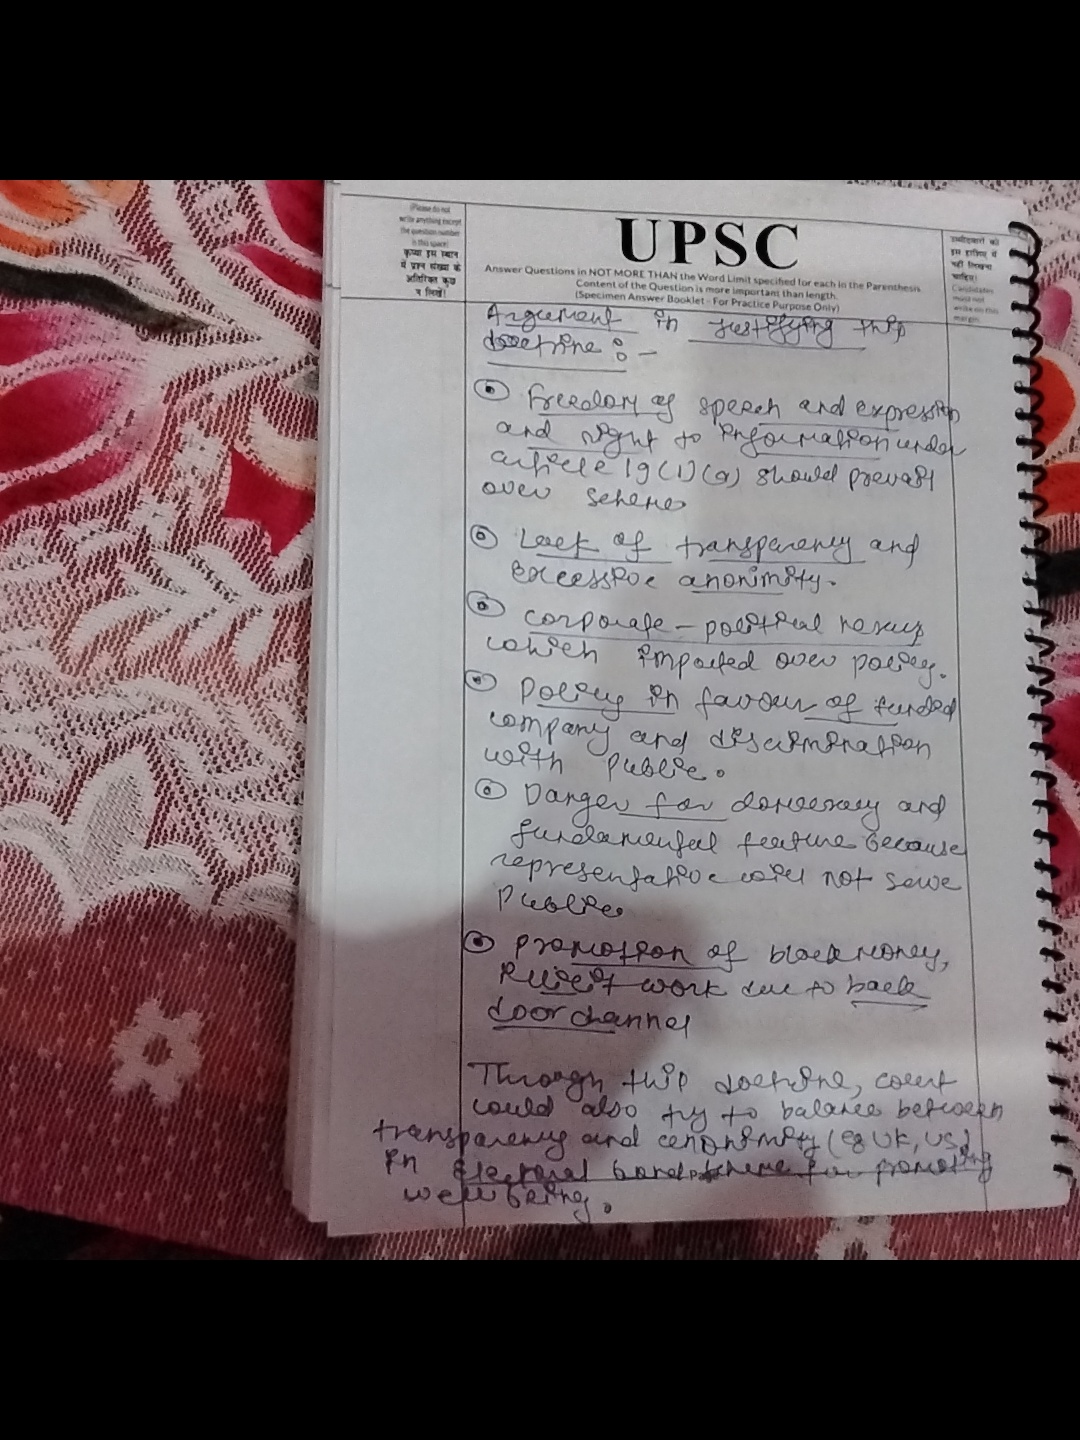 (Please do not
write anything except
the question number
in this space)
कृपया इस स्थान
में प्रश्न संख्या के
अतिरिक्त कुछ
न लिखें।
UPSC
Answer Questions in NOT MORE THAN the Word Limit specified for each in the Parenthesis.
Content of the Question is more important than length.
(Specimen Answer Booklet - For Practice Purpose Only)
उम्मीदवारों को
इस हाशिए में
नहीं लिखना
चाहिए।
Candidates
must not
write on this
margin
Argument in justifying this
doctrine :-
Freedom of speech and expression
and right to information under
article 19(1)(a) should prevail
over scheme
Lack of transparency and
excessive anonimity.
corporate - political nexus
which impacted over policy.
Policy in favour of funded
company and discrimination
with public.
Danger for democracy and
fundamental feature because
representative will not serve
Public
promotion of black money,
illicit work due to back
door channel
Through this doctrine, court
could also try to balance between
transparency and anonimity (eg UK, US)
in electoral bond scheme for promoting
wellbeing.